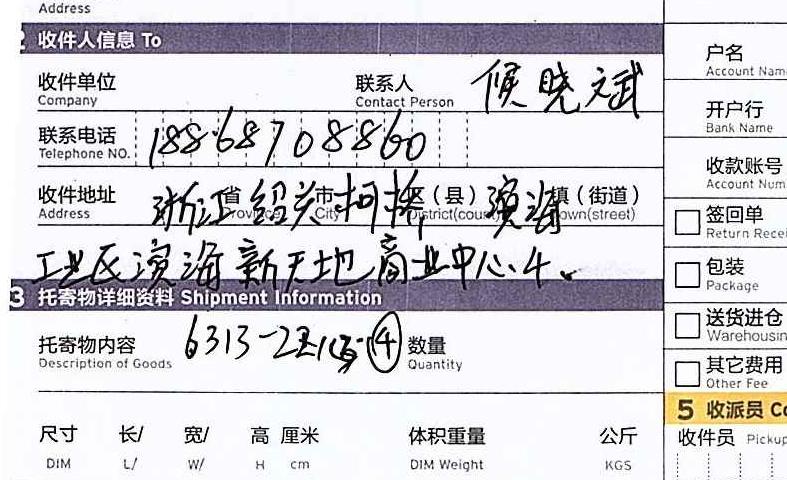 Address
2 收件人信息 To
收件单位 Company 联系人 Contact Person 候晓斌
联系电话 Telephone NO. 18868708860
收件地址 Address 浙江省 Province 绍兴市 City 柯桥区（县） District(county) 滨海镇（街道） Town(street)
工业区滨海新天地商业中心.4.
3 托寄物详细资料 Shipment Information
托寄物内容 Description of Goods 6313- ④ 数量 Quantity
尺寸 长/ 宽/ 高 厘米 体积重量 公斤
DIM L/ W/ H cm DIM Weight KGS
户名
Account Nam
开户行
Bank Name
收款账号
Account Num
签回单
Return Recei
包装
Package
送货进仓
Warehousin
其它费用
Other Fee
5 收派员 Co
收件员 Pickup